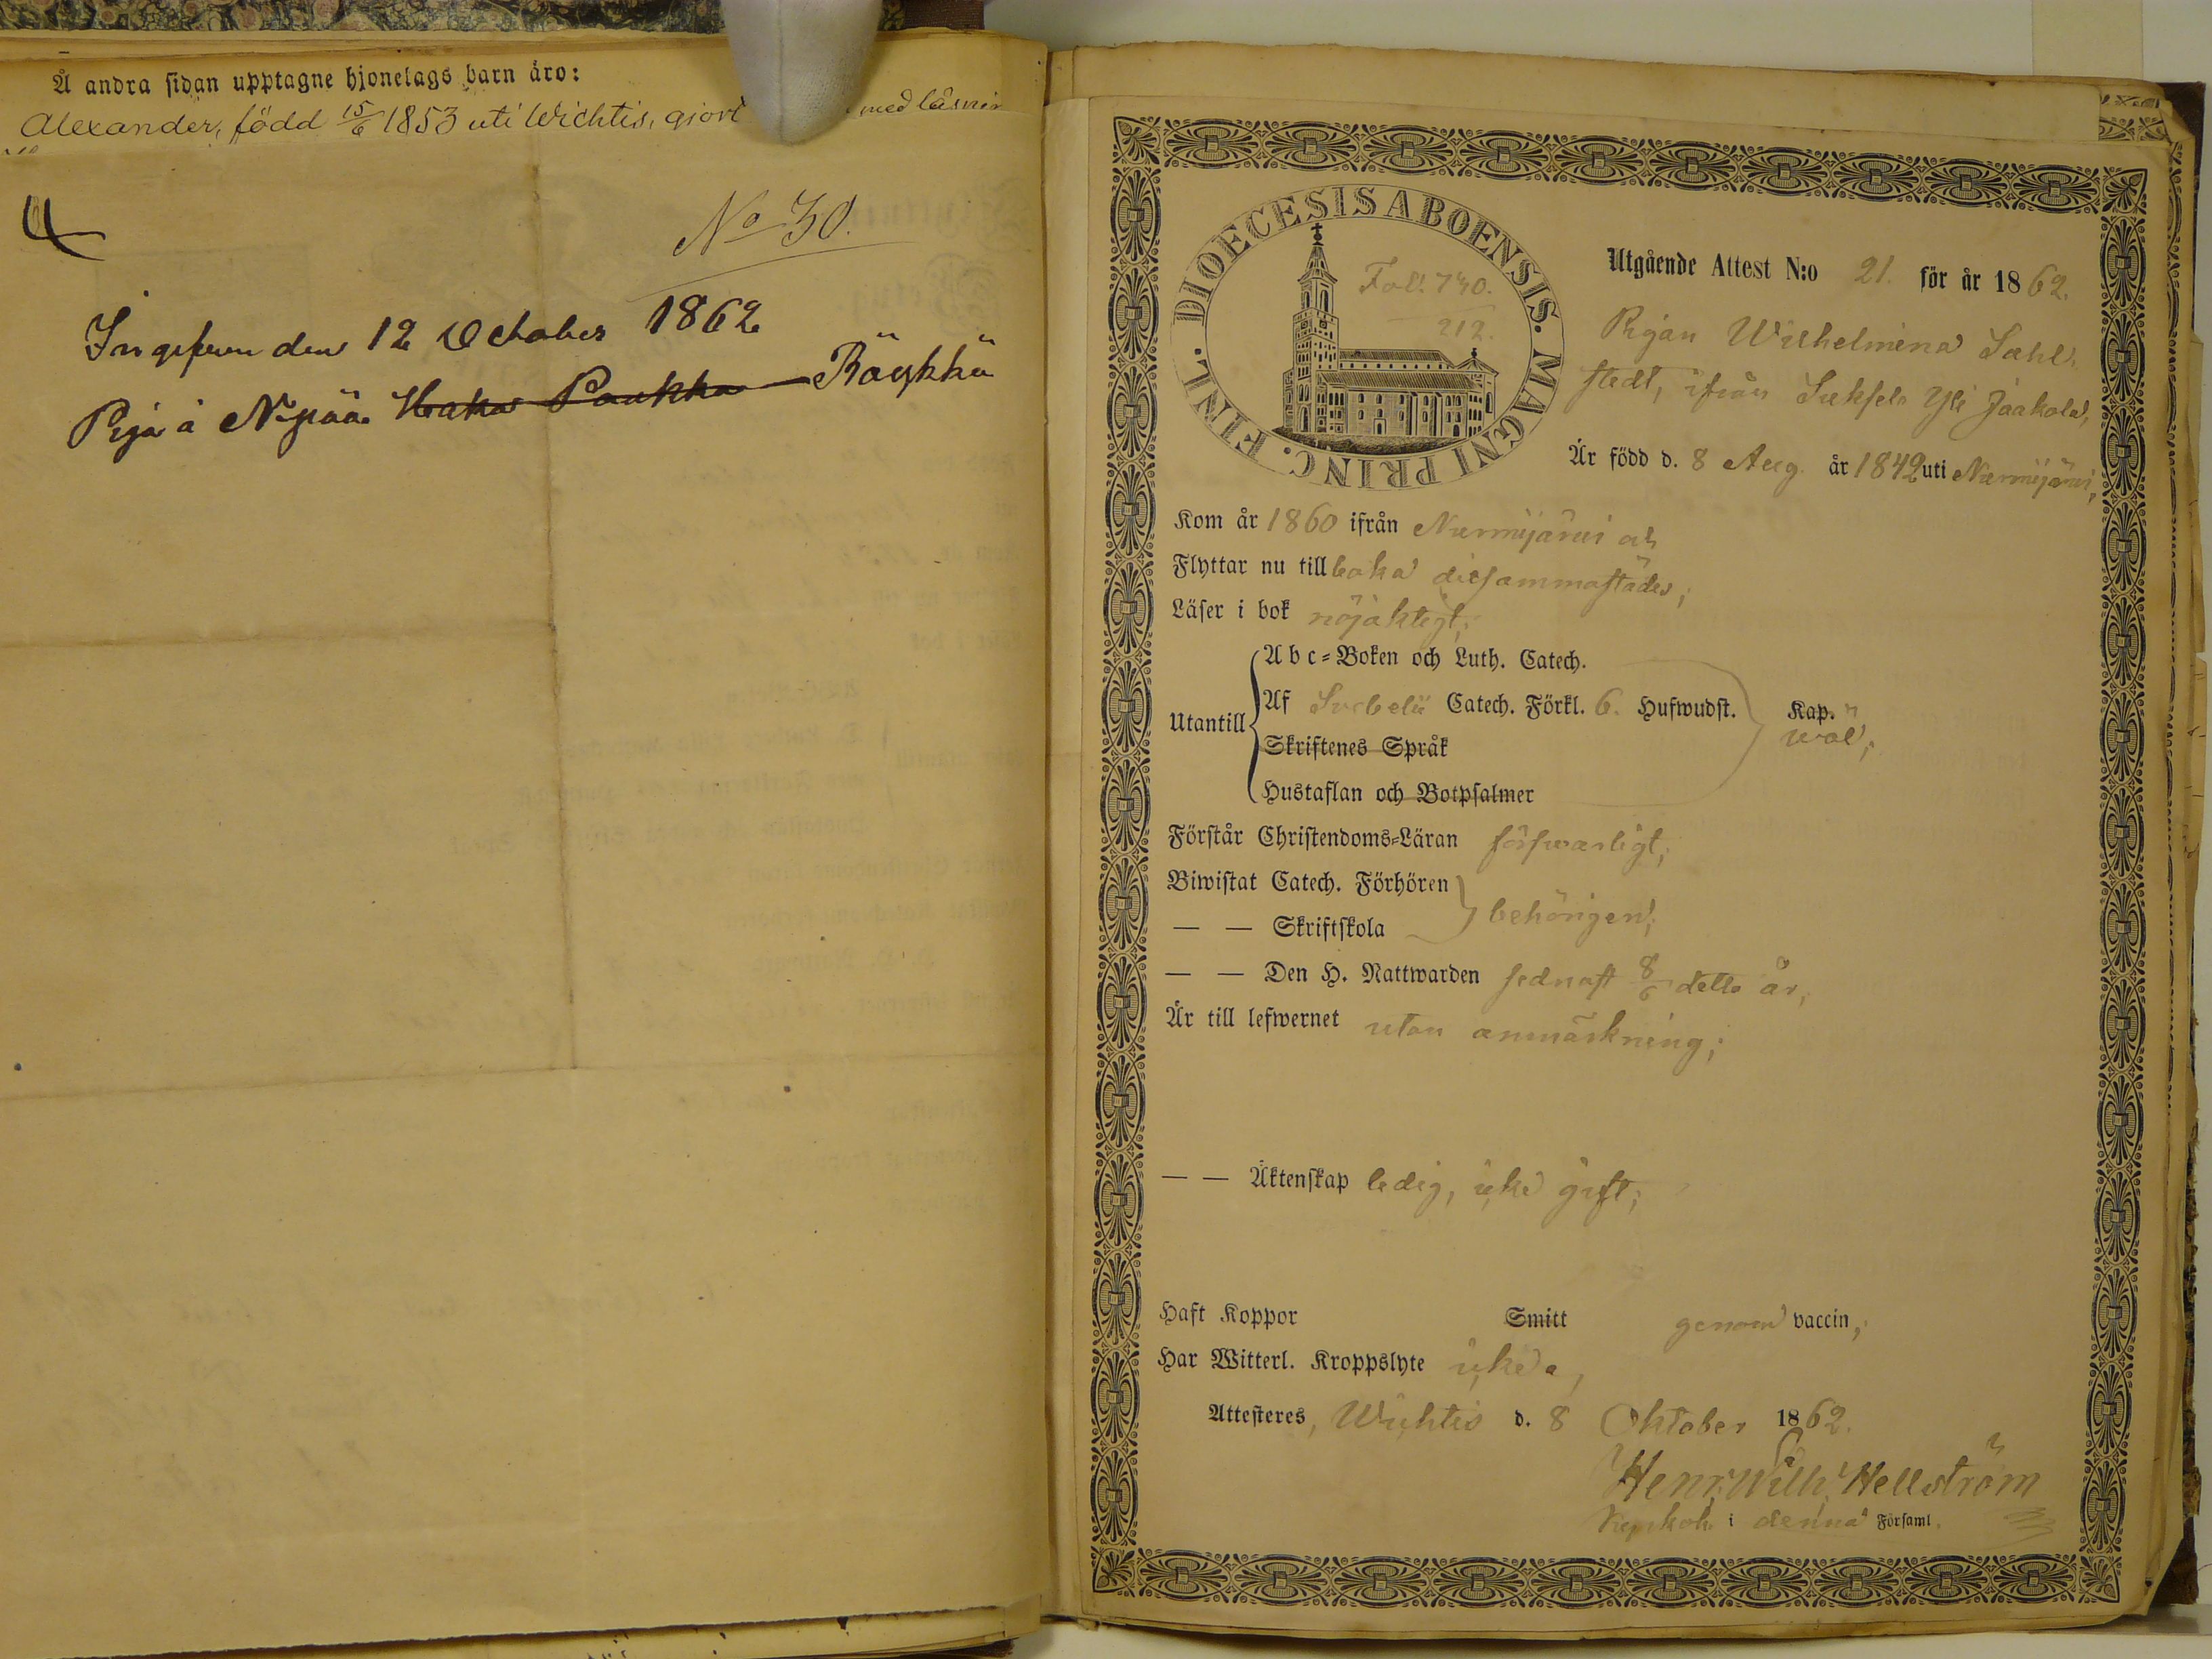 Å andra sidan upptagne hjonelags barn äro:
Alexander, född 15/6 1853 uti Wichtis, giort med läsnin
No 30.
den 12 October 1862
Piga å Nipää Röykkä
DIOECESIS ABOENSIS. MAGNI PRINC. FINL.
Fol. 740.
212.
Utgående Attest N:o 21. för år 1862.
Pigan Wilhelmina Sahl-
stedt, ifrån Suksela Yli Jaakola,
Är född d. 8 Aug. år 1842 uti Nurmijärvi,
Kom år 1860 ifrån Nurmijärvi och
Flyttar nu tillbaka dersammastädes;
Läser i bok nöjaktigt;
Utantill
Abc-Boken och Luth. Catech.
Af Svebelii Catech. Förkl. 6. Hufwudst. Kap.
wäl;
Skriftenes Språk
Hustaflan och Botpsalmer
Förstår Christendoms-Läran försvarligt;
Biwistat Catech. Förhören
behörigen;
— — Skriftskola
— — Den H. Nattwarden sednast 8/6 detta år,
Är till lefwernet utan anmärkning;
— — Äktenskap ledig, icke gift;
Haft Koppor Smitt genom vaccin,
Har Witterl. Kroppslyte icke,
Attesteres, Wichtis d. 8 Oktober 1862.
Henr. Wilh. Hellström
i denna Församl.